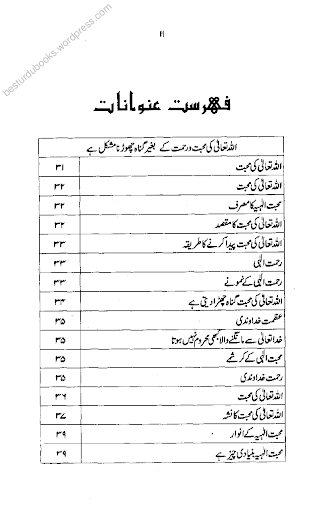 besturdubooks.wordpress.com
۱۱
فہرست عنوانات
اللہ تعالیٰ کی محبت و رحمت کے بغیر گناہ چھوڑنا مشکل ہے
اللہ تعالیٰ کی محبت ۳۱
اللہ تعالیٰ کی محبت ۳۲
محبت الٰہیہ کا مصرف ۳۲
اللہ تعالیٰ کی محبت کا مقصد ۳۲
اللہ تعالیٰ کی محبت پیدا کرنے کا طریقہ ۳۳
رحمت الٰہی ۳۳
رحمت الٰہی کے نمونے ۳۳
اللہ تعالیٰ کی محبت گناہ چھڑا دیتی ہے ۳۴
عظمت خداوندی ۳۵
خدا تعالیٰ سے مانگنے والا کبھی محروم نہیں ہوتا ۳۵
محبت الٰہی کے کرشمے ۳۵
رحمت خداوندی ۳۵
اللہ تعالیٰ کی محبت ۳۶
اللہ تعالیٰ کی محبت کا نشہ ۳۷
محبت الٰہیہ کے انوار ۳۹
محبت الٰہیہ بنیادی چیز ہے ۳۹